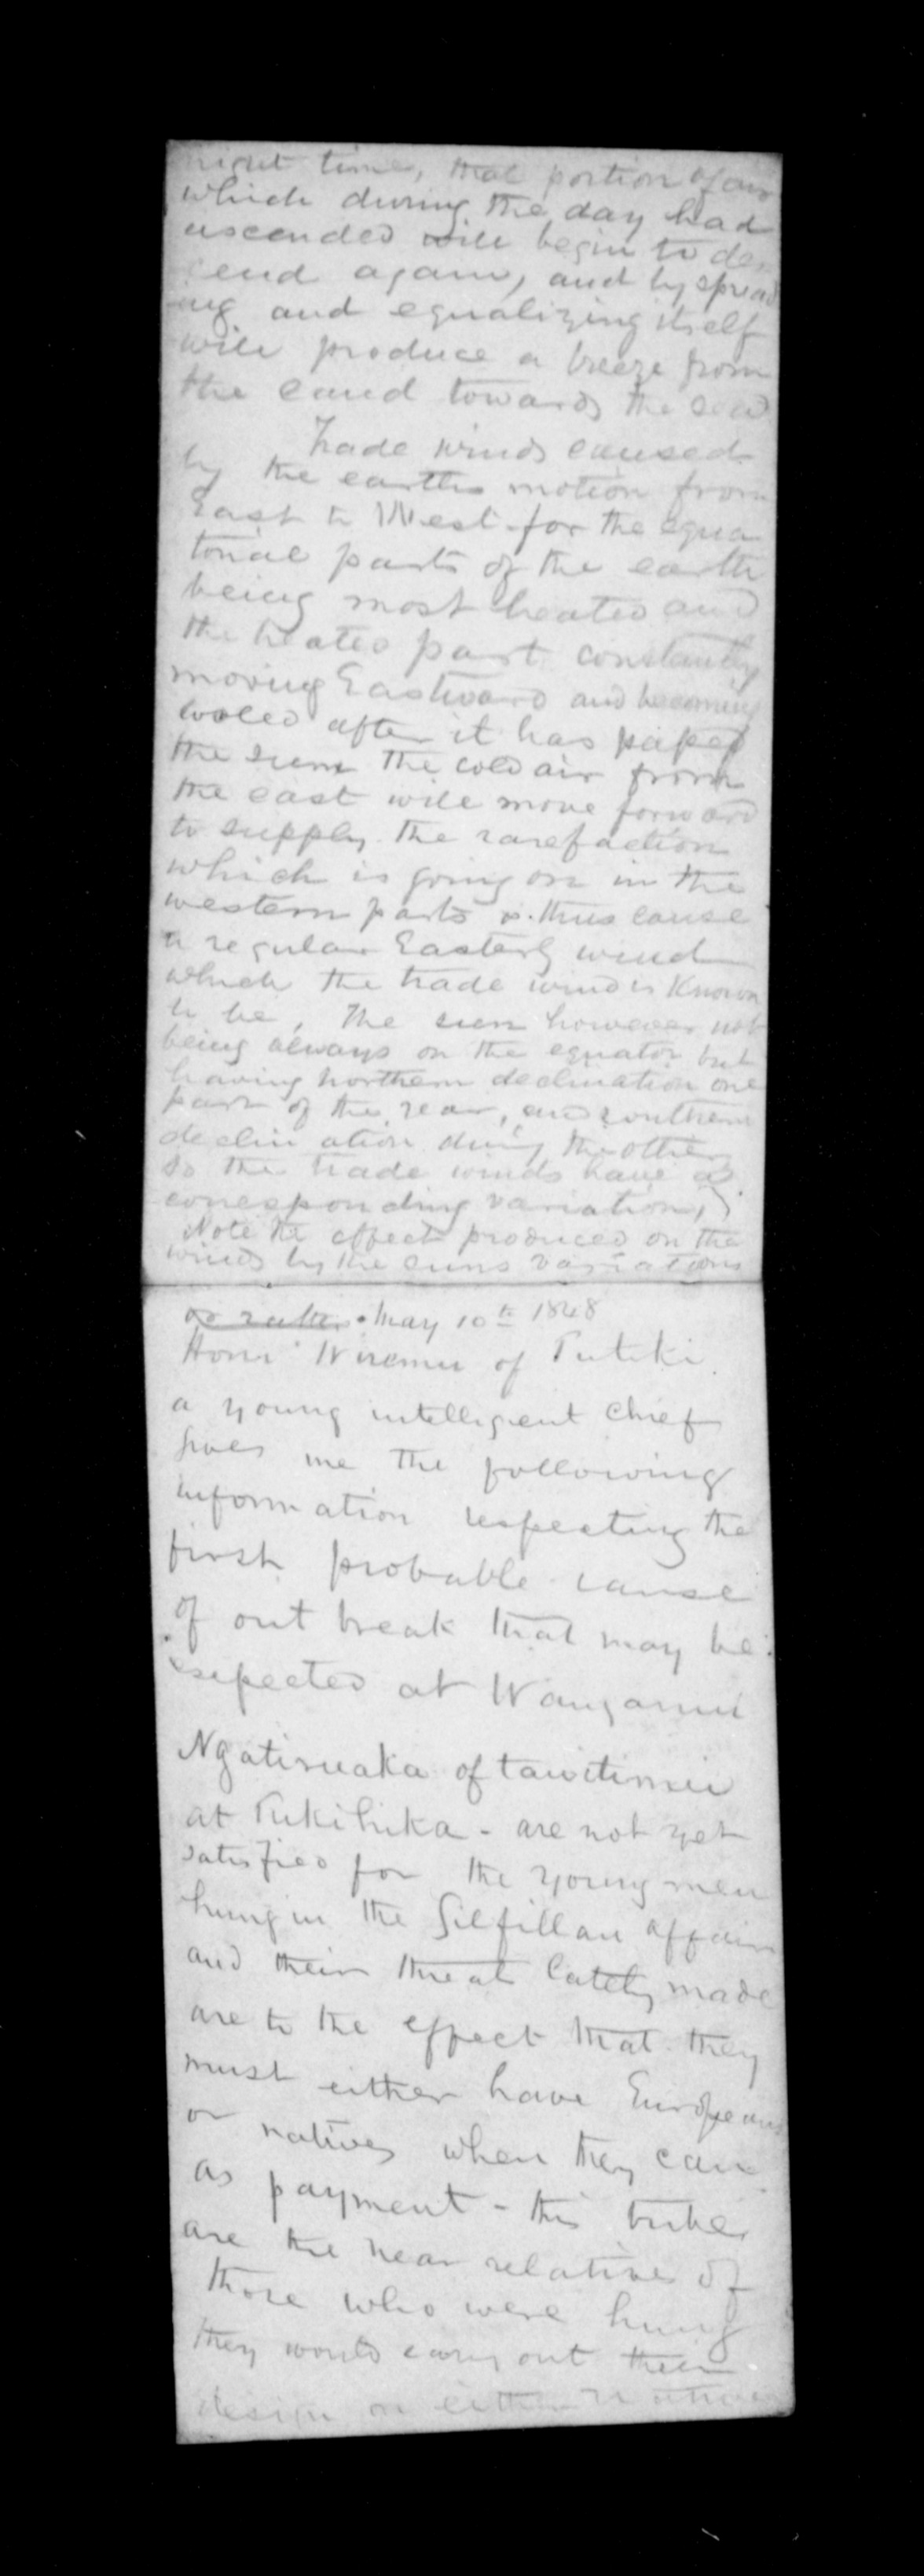 night time, that portion of air
which during the day had
ascended will begin to des
cend again, and by spread
ing and equalizing itself
will produce a breeze from
the land towards the sea
Trade winds caused
by the earths motion from
East to West for the equa
torial parts of the earth
being most heated and
the heated part constantly
moving Eastward and becoming
cooled after it has passed
the sun the cold air from
the east will move forward
to supply the rarefaction
which is going on in the
western parts & thus cause
a regular Easterly wind
which the trade wind is Known
to be, The sun however not
being always on the equator but
having northern declination one
part of the year, and southern
declin ation during the other
so the trade winds have a
corresponding variation,
Note the effect produced on the
winds by the suns variations
May 10th 1848
Honi Wiremu of Putiki
a young intelligent Chief
gives me the following
information respecting the
first probable cause
of out break that may be
expected at Wanganui
Ngatiruaka of
at Pukihika - are not yet
satisfied for the young men
hung in the Gilfillan affair
and their threat lately made
are to the effect that they
must either have Europeans
or natives when they can
as payment - this tribe
are the near relatives of
those who were hung
they would carry out their
design on either Natives